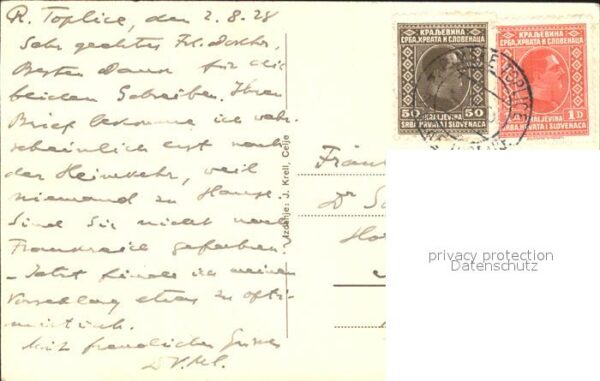 R. Toplice, den 2.8.28
Sehr geehrtes Frl. Doktor,
Besten Dank für die
beiden Schreiben. Ihren
Brief bekomme ich wahr-
scheinlich erst nach
der Heimkehr, weil
niemand zu Hause.
Sind Sie nicht nach
Frankreich gefahren.
– Jetzt finde ich meinen
Vorschlag etwas zu opti-
mistisch.
Mit freundlichen Grüßen
Izdanje: J. Krell, Celje
КРАЉЕВИНА
СРБА, ХРВАТА И СЛОВЕНАЦА
50 50
KRALJEVINA
SRBA, HRVATA I SLOVENACA
КРАЉЕВИНА
СРБА, ХРВАТА И СЛОВЕНАЦА
1 D
KRALJEVINA
SRBA, HRVATA I SLOVENACA
TOPLICE
Frän
Dr
privacy protection
Datenschutz